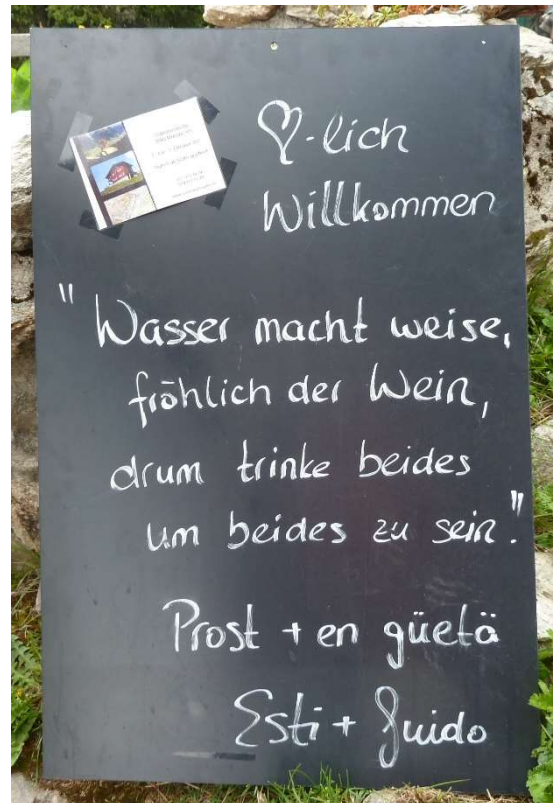 ♡-lich
Willkommen
"Wasser macht weise,
fröhlich der Wein,
drum trinke beides
um beides zu sein."
Prost + en güetä
Esti + Guido